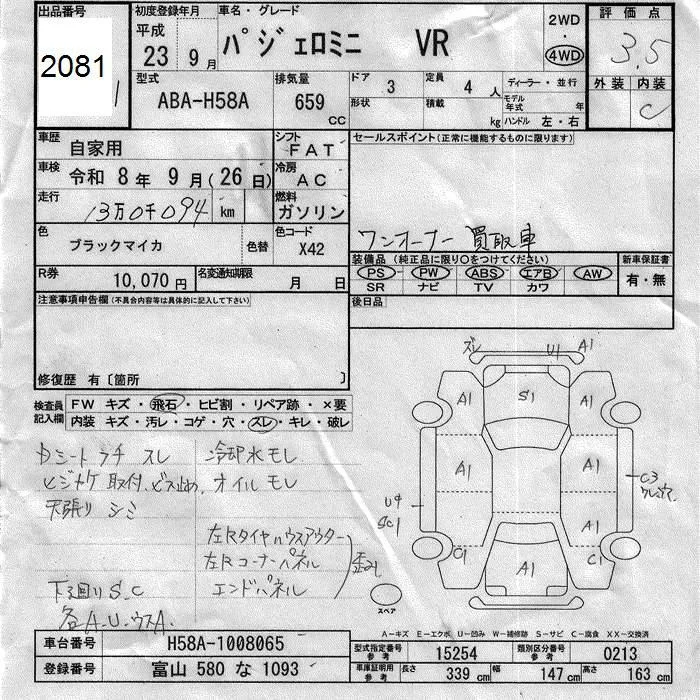 出品番号
2081
初度登録年月
平成
23 9月
車名・グレード
パジェロミニ VR
2WD
・
4WD
評価点
3.5
外装 内装
C
型式
ABA-H58A
排気量
659
CC
ドア 3
定員 4 人
ディーラー・並行
形状
積載 kg
モデル年式 年
ハンドル 左・右
車歴 自家用
シフト FAT
車検 令和 8年 9月(26日)
冷房 AC
走行 13万0千094 km
燃料 ガソリン
色 ブラックマイカ 色替
色コード X42
R券 10,070円
名変通知期限 月 日
セールスポイント(正常に機能するものに限ります)
ワンオーナー 買取車
装備品 (純正品に限り○をつけてください)
新車保証書
PS PW ABS エアB AW
SR ナビ TV カワ
有・無
後日品
注意事項申告欄(不具合内容等は具体的に記入して下さい)
修復歴 有〔箇所 〕
検査員記入欄
FW キズ・飛石・ヒビ割・リペア跡・×要
内装 キズ・汚レ・コゲ・穴・スレ・キレ・破レ
シート ラチ スレ
ヒジカケ 取付ビス止め
天張り シミ
下廻り S.C
各A.U.ウスA.
冷却水モレ
オイルモレ
左Rタイヤハウスアウター
左Rコーナーパネル
エンドパネル
歪み
ズレ U1 A1
A1 S1 A1
A1 A1
U4
SC1
C3
A1
C1 A1 C1
スペア
A-キズ E-エクボ U-凹み W-補修跡 S-サビ C-腐食 XX-交換済
車台番号 H58A-1008065
登録番号 富山 580 な 1093
型式指定番号 参考 15254
類別区分番号 参考 0213
車庫証明用 参考 長さ 339 cm 幅 147 cm 高さ 163 cm